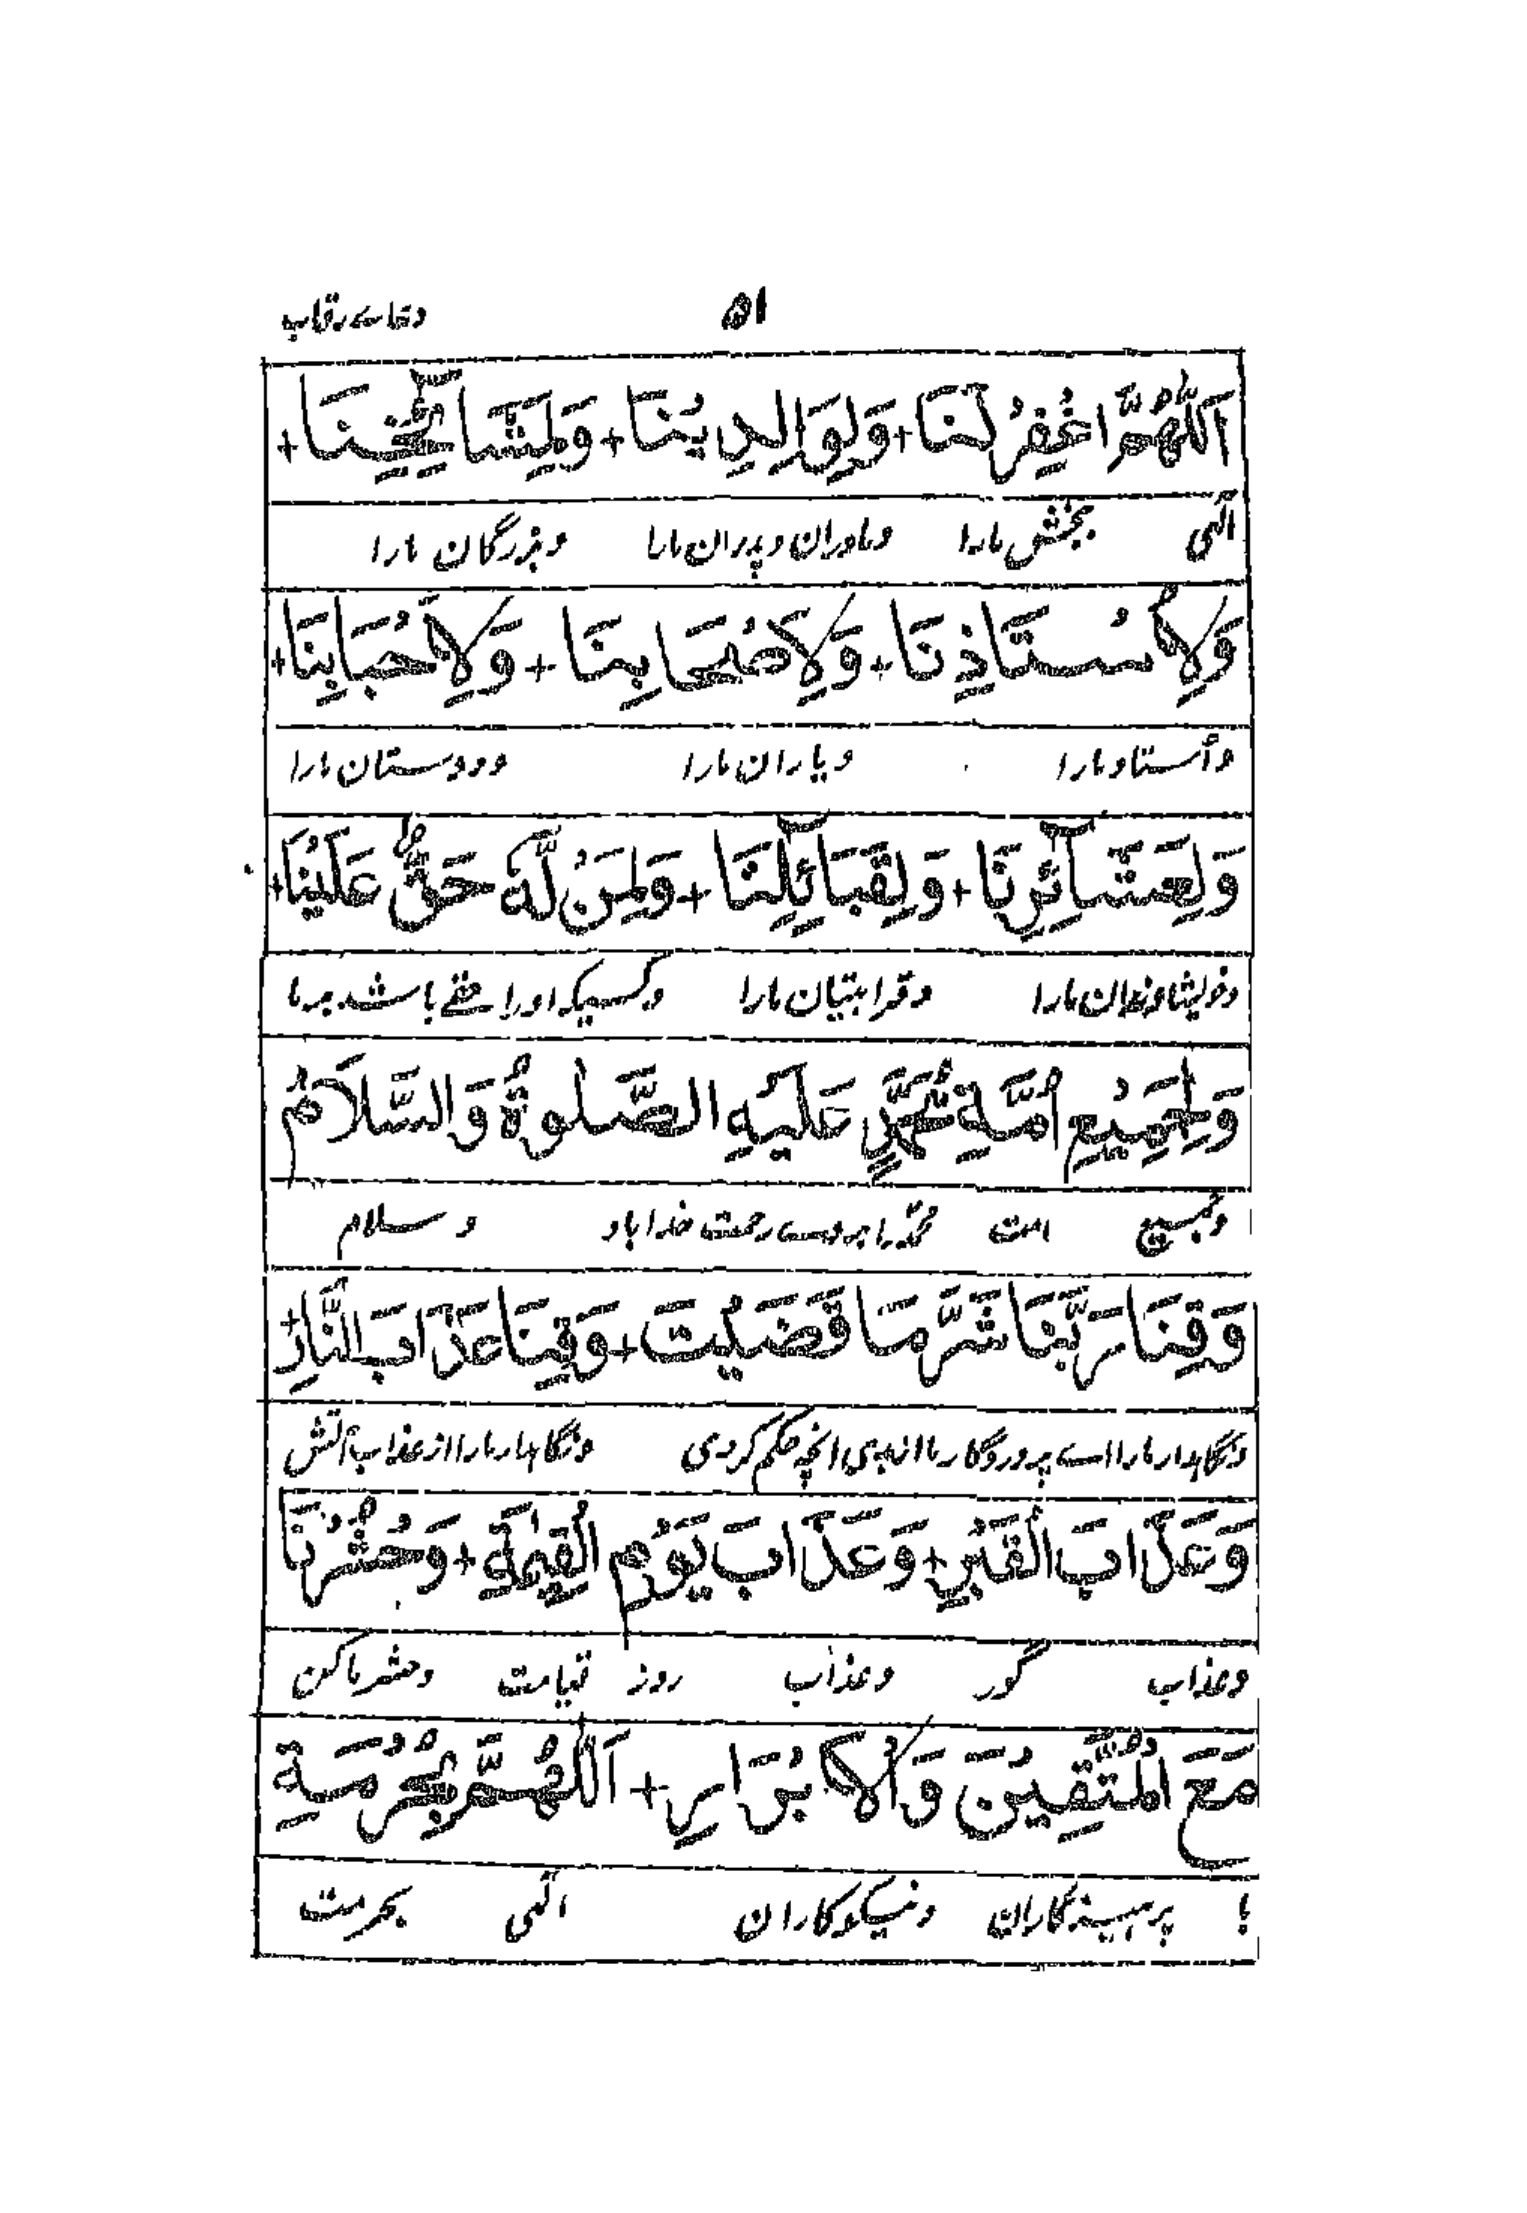 ۵۱ دعاے رقاب
اَللّٰهُمَّ اغْفِرْ لَنَا + وَلِوَالِدِيْنَا + وَلِمَشَآئِخِنَا +
الٰہی ببخش مارا ومادران وپدران مارا وبزرگان مارا
وَلِاُسْتَاذِنَا + وَلِاَصْحَابِنَا + وَلِاَحْبَابِنَا +
واُستاد مارا ویاران مارا ودوستان مارا
وَلِعَشَآئِرِنَا + وَلِقَبَآئِلِنَا + وَلِمَنْ لَّهٗ حَقٌّ عَلَيْنَا +
وخویشاوندان مارا وقرابتیان مارا وکسیکہ اورا حقے باشد برما
وَلِجَمِيْعِ اُمَّةِ مُحَمَّدٍ عَلَيْهِ الصَّلٰوةُ وَالسَّلَامُ
وجمیع امت محمدؐ را بروے رحمت خدا باد وسلام
وَقِنَا رَبَّنَا شَرَّ مَا قَضَيْتَ + وَقِنَا عَذَابَ النَّارِ +
ونگاہدار مارا اے پروردگار ما از بدی انچہ حکم کردی ونگاہدار مارا از عذاب آتش
وَعَذَابَ الْقَبْرِ + وَعَذَابَ يَوْمِ الْقِيٰمَةِ + وَحْشُرْنَا
وعذاب گور وعذاب روز قیامت وحشر ما کن
مَعَ الْمُتَّقِيْنَ وَالْاَبْرَارِ + اَللّٰهُمَّ بِحُرْمَةِ
با پرہیزگاران ونیکوکاران الٰہی بحرمت